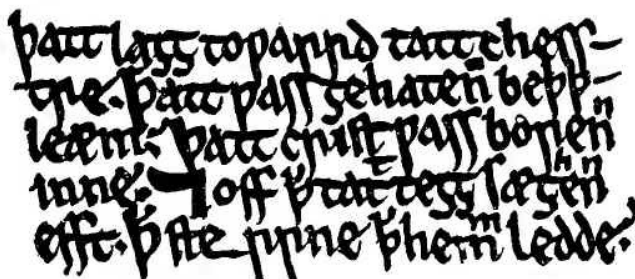 þatt laȝȝ toƿarrd tatt chess-
tre. þatt ƿass ȝehatenn beþþ-
leæm. þatt crist ƿass borenn
inne. ⁊ off þ̄ tatt teȝȝ sæȝhenn
efft. þ̄ ste rrne þ̄ hemm ledde.